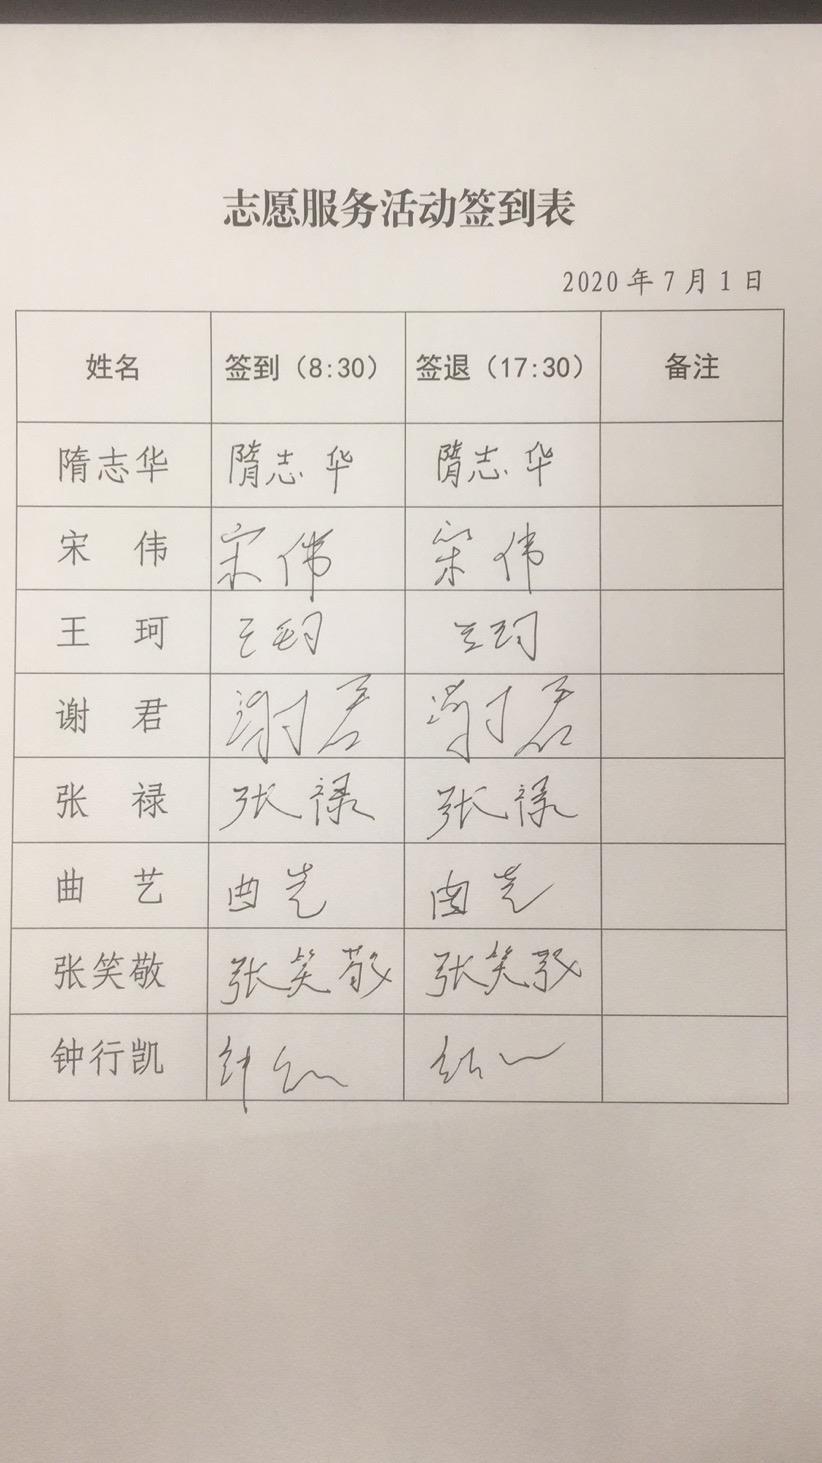 志愿服务活动签到表
2020年7月1日
姓名 签到（8:30） 签退（17:30） 备注
隋志华 隋志华 隋志华
宋伟 宋伟 宋伟
王珂 王珂 王珂
谢君 谢君 谢君
张禄 张禄 张禄
曲艺 曲艺 曲艺
张笑敬 张笑敬 张笑敬
钟行凯